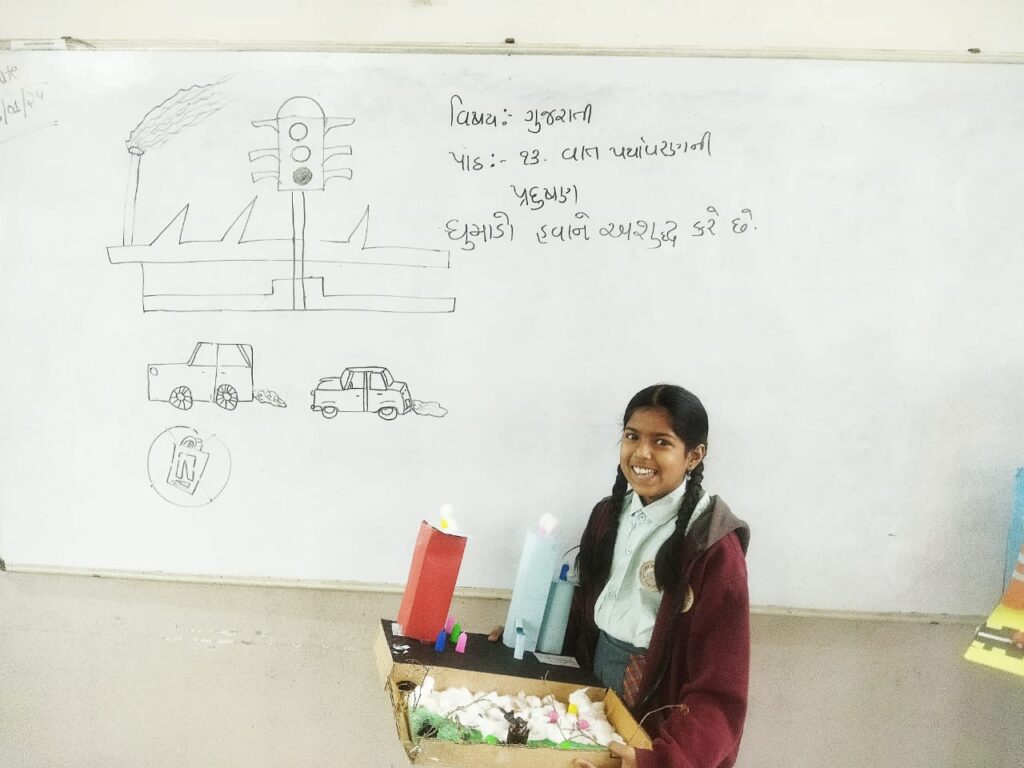 વિષય:- ગુજરાતી
પાઠ:- ૧૩. વાત પર્યાવરણની
પ્રદુષણ
ધુમાડો હવાને અશુદ્ધ કરે છે.